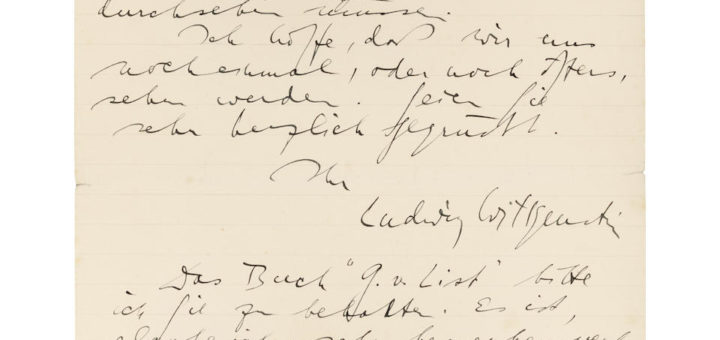 durchsehen müssen.
Ich hoffe, daß wir uns
noch einmal, oder noch öfters,
sehen werden. Seien Sie
sehr herzlich gegrüßt.
Ihr
Ludwig Wittgenstein
Das Buch "G. v. List" bitte
ich Sie zu behalten. Es ist,
glaube ich, sehr